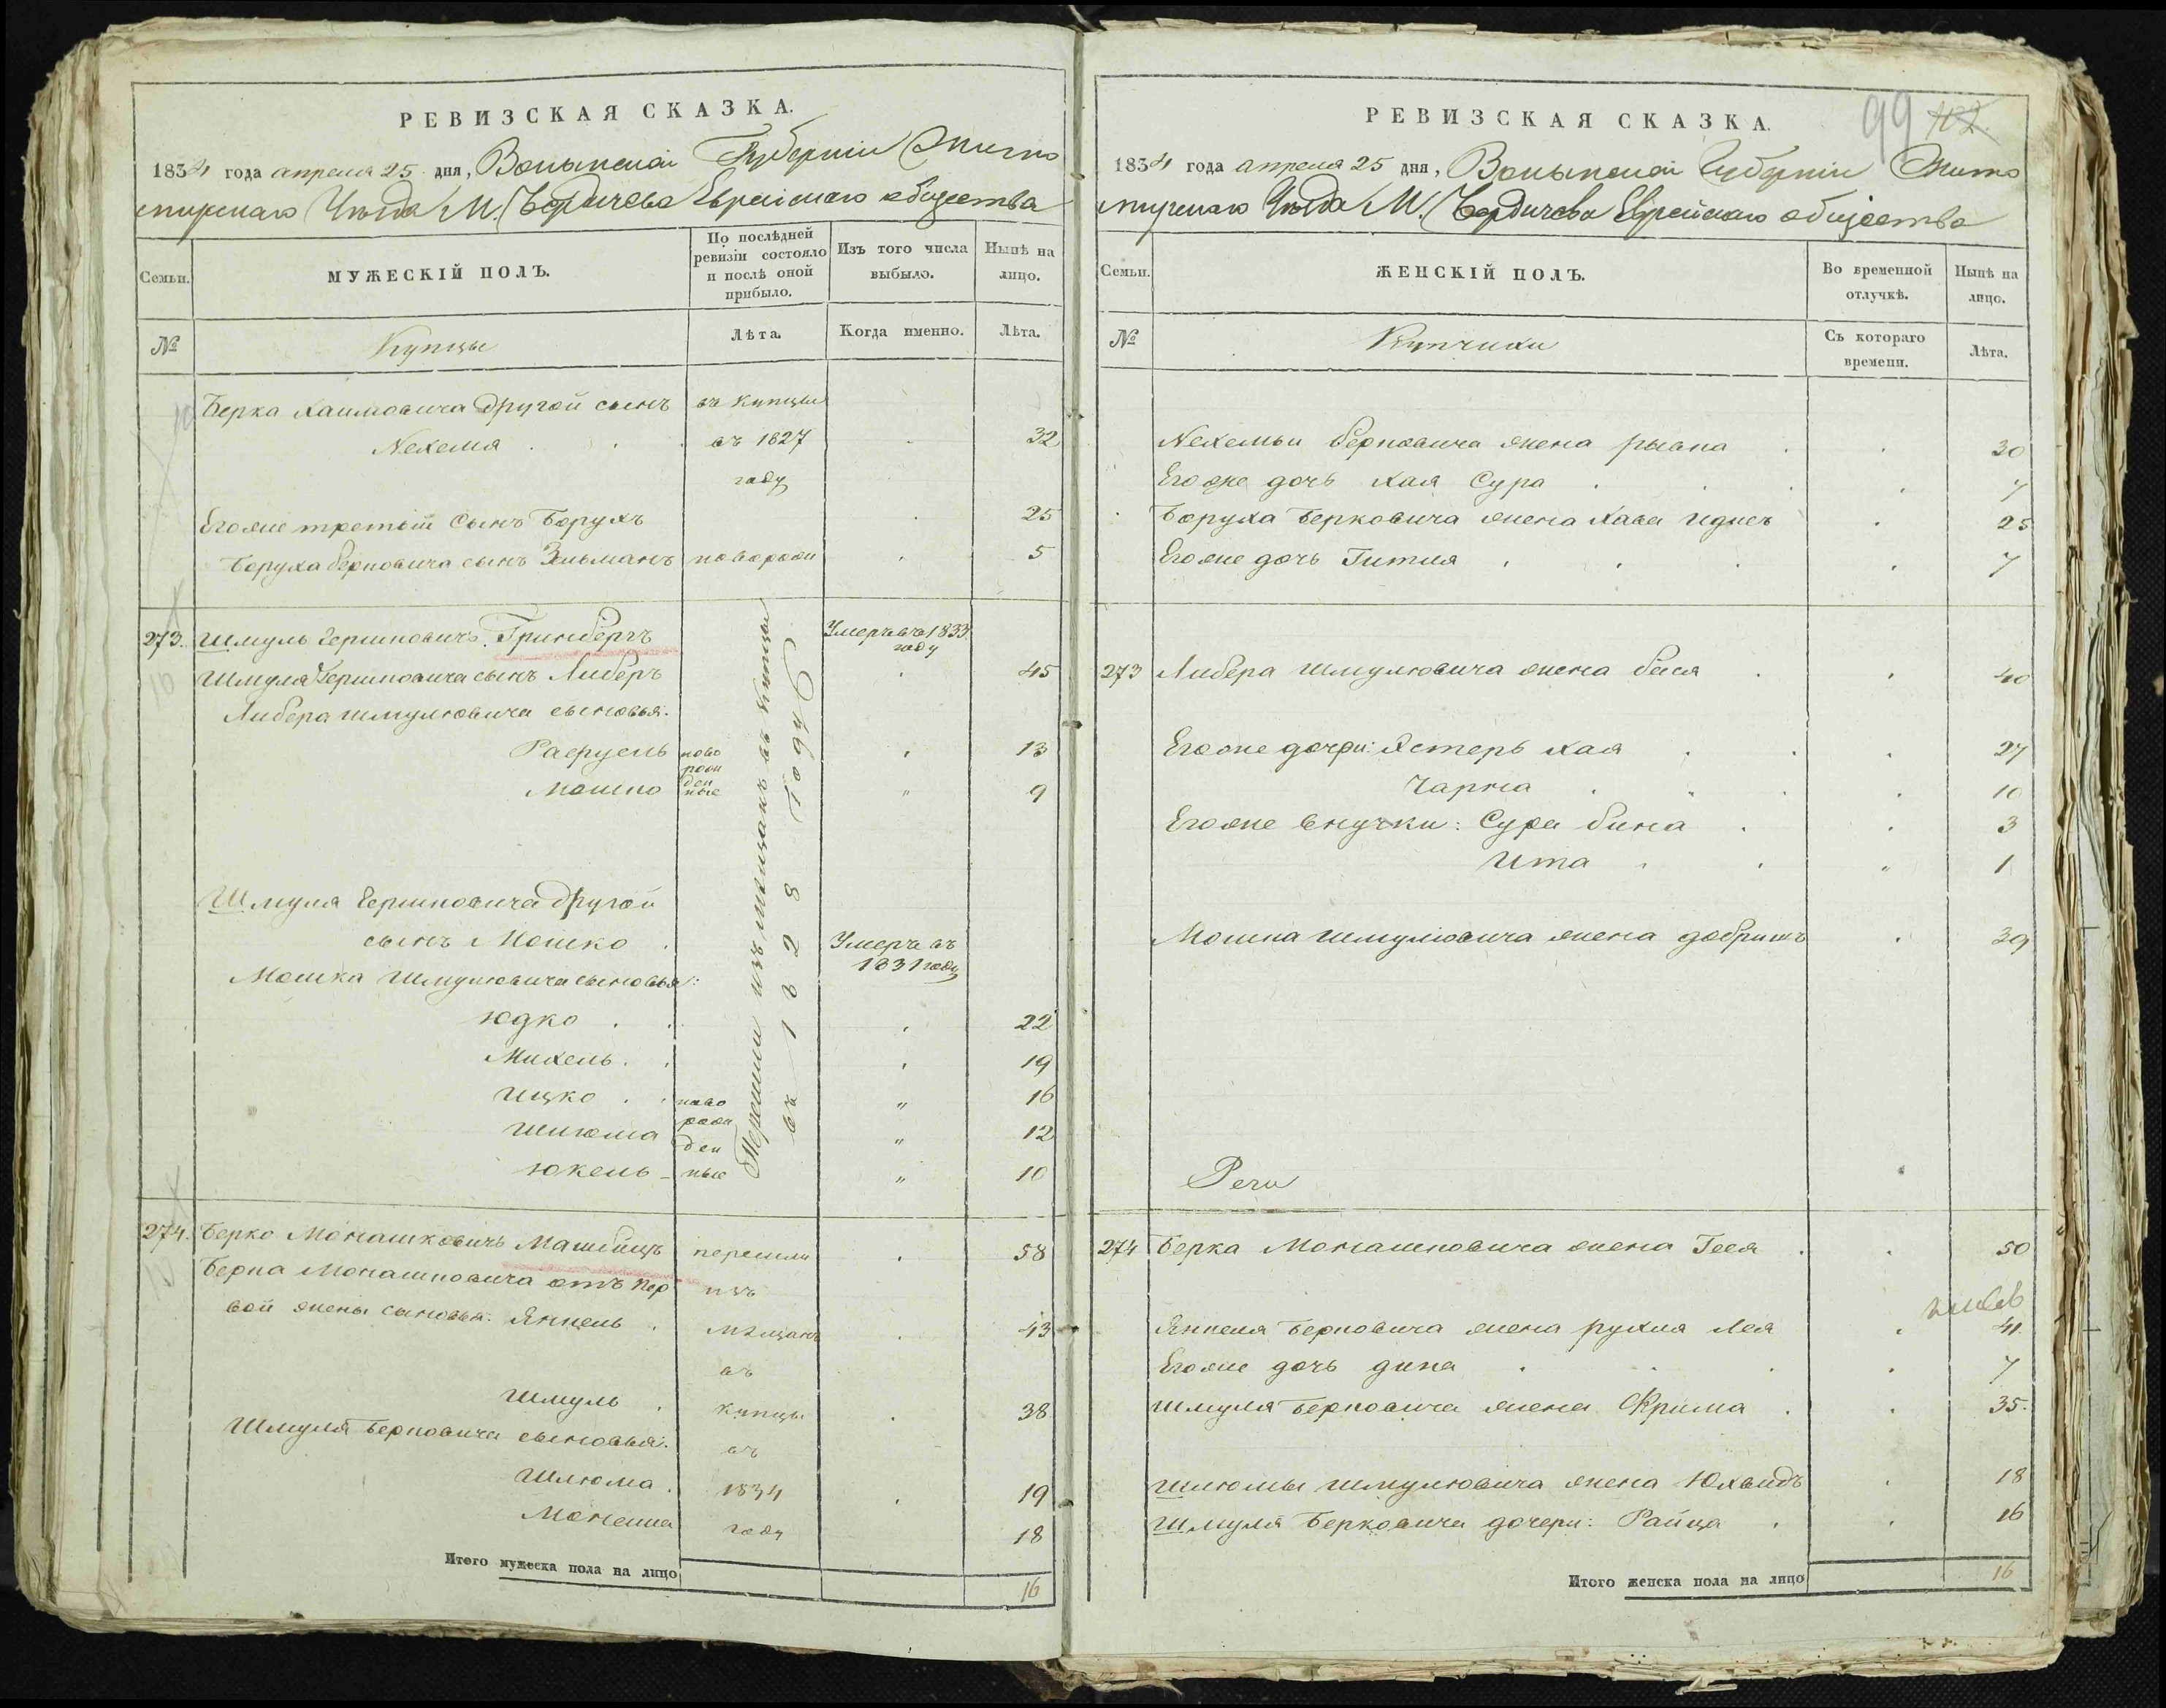 РЕВИЗСКАЯ СКАЗКА.
1834 года апреля 25 дня, Волынской Губернии Жито
мирскаго Уѣзда М. Бердичева Еврейскаго общества
Семьи.
МУЖЕСКІЙ ПОЛЪ.
По послѣдней ревизіи состояло и послѣ оной прибыло.
Изъ того числа выбыло.
Нынѣ на лицо.
№
Купцы
Лѣта.
Когда именно.
Лѣта.
Берка Хаимовича другой сынъ въ купцы
Нехемя въ 1827 32
году
Егоже третьій сынъ Борухъ 25
Боруха Берковича сынъ Зельманъ новорож 5
273. Шмуль Гершковичъ Гринбергъ Умеръ въ 1833 году
Шмуля Гершковича сынъ Либеръ 45
Либера Шмулювича сыновья:
Рафуель ново 13
рож
Мошко ден ные 9
Перешли изъ мещанъ въ купцы
въ 1828 году
Шмуля Гершковича другой
сынъ Мошко Умеръ въ
1831 году
Мошка Шмулювича сыновья:
Юдко 22
Михель 19
Ицко ново 16
Шлюма рож 12
ден
Юкель ные 10
274. Берко Монашковичъ перешли 58
Берка Монашковича отъ пер изъ
вой жены сыновья: Янкель мѣщанъ 43
въ
Шмуль купцы 38
Шмуля Берковича сыновья: въ
Шлюма 1834 19
Монаша году 18
Итого мужеска пола на лицо 16
99 102.
РЕВИЗСКАЯ СКАЗКА.
1834 года апреля 25 дня, Волынской Губерніи Жито
мирскаго Уѣзда М. Бердичева Еврейскаго общества
Семьи.
ЖЕНСКІЙ ПОЛЪ.
Во временной отлучкѣ.
Нынѣ на лицо.
№
Купчихи
Съ котораго времени.
Лѣта.
Нехемьи Берковича жена Рывка 30
Егоже дочь Хая Сура 7
Боруха Берковича жена Хава Идись 25
Егоже дочь Гитля 7
273 Либера Шмулювича жена Бейся 40
Егоже дочри: Естеръ Хая 27
Чарна 10
Егоже внучки: Сура Бина 3
Ита 1
Мошка Шмулювича жена Добришъ 39
274 Берка Монашковича жена Геся 50
Янкеля Берковича жена Рухля Лея 41.
Егоже дочь Дина 7
Шмуля Берковича жена Фрима 35.
Шлюмы Шмулювича жена Юхвидъ 18
Шмуля Берковича дочери: Райца 16
Итого женска пола на лицо 16